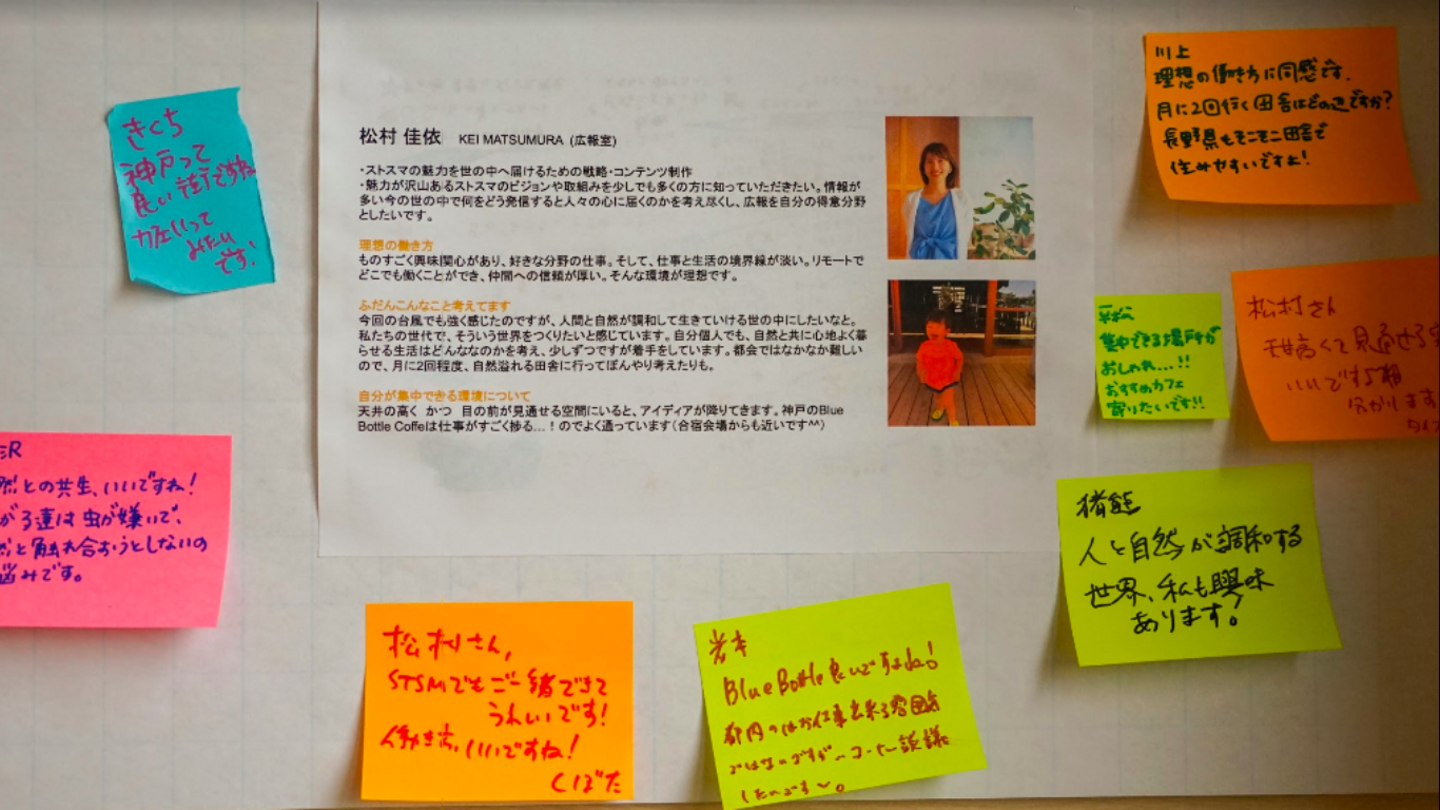 松村 佳依 KEI MATSUMURA (広報室)
・ストスマの魅力を世の中へ届けるための戦略・コンテンツ制作
・魅力が沢山あるストスマのビジョンや取組みを少しでも多くの方に知っていただきたい。情報が
多い今の世の中で何をどう発信すると人々の心に届くのかを考え尽くし、広報を自分の得意分野
としたいです。
理想の働き方
ものすごく興味関心があり、好きな分野の仕事。そして、仕事と生活の境界線が淡い。リモートで
どこでも働くことができ、仲間への信頼が厚い。そんな環境が理想です。
ふだんこんなこと考えてます
今回の台風でも強く感じたのですが、人間と自然が調和して生きていける世の中にしたいなと。
私たちの世代で、そういう世界をつくりたいと感じています。自分個人でも、自然と共に心地よく暮
らせる生活はどんななのかを考え、少しずつですが着手をしています。都会ではなかなか難しい
ので、月に2回程度、自然溢れる田舎に行ってぼんやり考えたりも。
自分が集中できる環境について
天井の高く かつ 目の前が見通せる空間にいると、アイディアが降りてきます。神戸のBlue
Bottle Coffeは仕事がすごく捗る…！のでよく通っています（合宿会場からも近いです^^）
きくち
神戸って
良い街ですね
カフェいって
みたい
です!
川上
理想の働き方に同感です.
月に2回行く田舎はどの辺ですか?
長野県もそこそこ田舎で
住みやすいですよ!
集中できる場所が
おしゃれ...!!
おすすめカフェ
寄りたいです!!
松村さん
天井高くて見渡せる
いいですよね
分かります
との共生、いいですね!
が子達は虫が嫌いで、
と触れ合おうとしないの
悩みです。
猪熊
人と自然が調和する
世界、私も興味
あります!
松村さん,
STSMでもご一緒できて
うれしいです!
働き方、いいですね!
くぼた
岩本
Blue Bottle良いですよね!
都内のはお仕事出来る雰囲気
ではないですが
したいです〜。